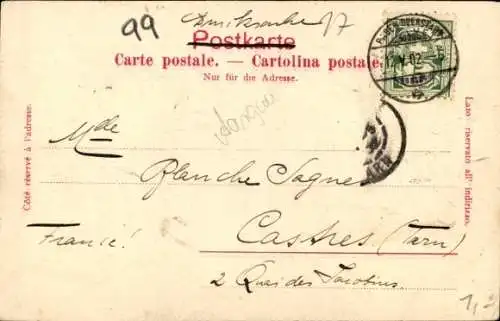 99
Postkarte
Carte postale. — Cartolina postale.
Nur für die Adresse.
Côté réservé à l'adresse.
Lato riservato all' indirizzo.
12.V.02
Mlle
Blanche Sagne
Castres (Tarn)
France!
2 Quai des Jacobins
1,-